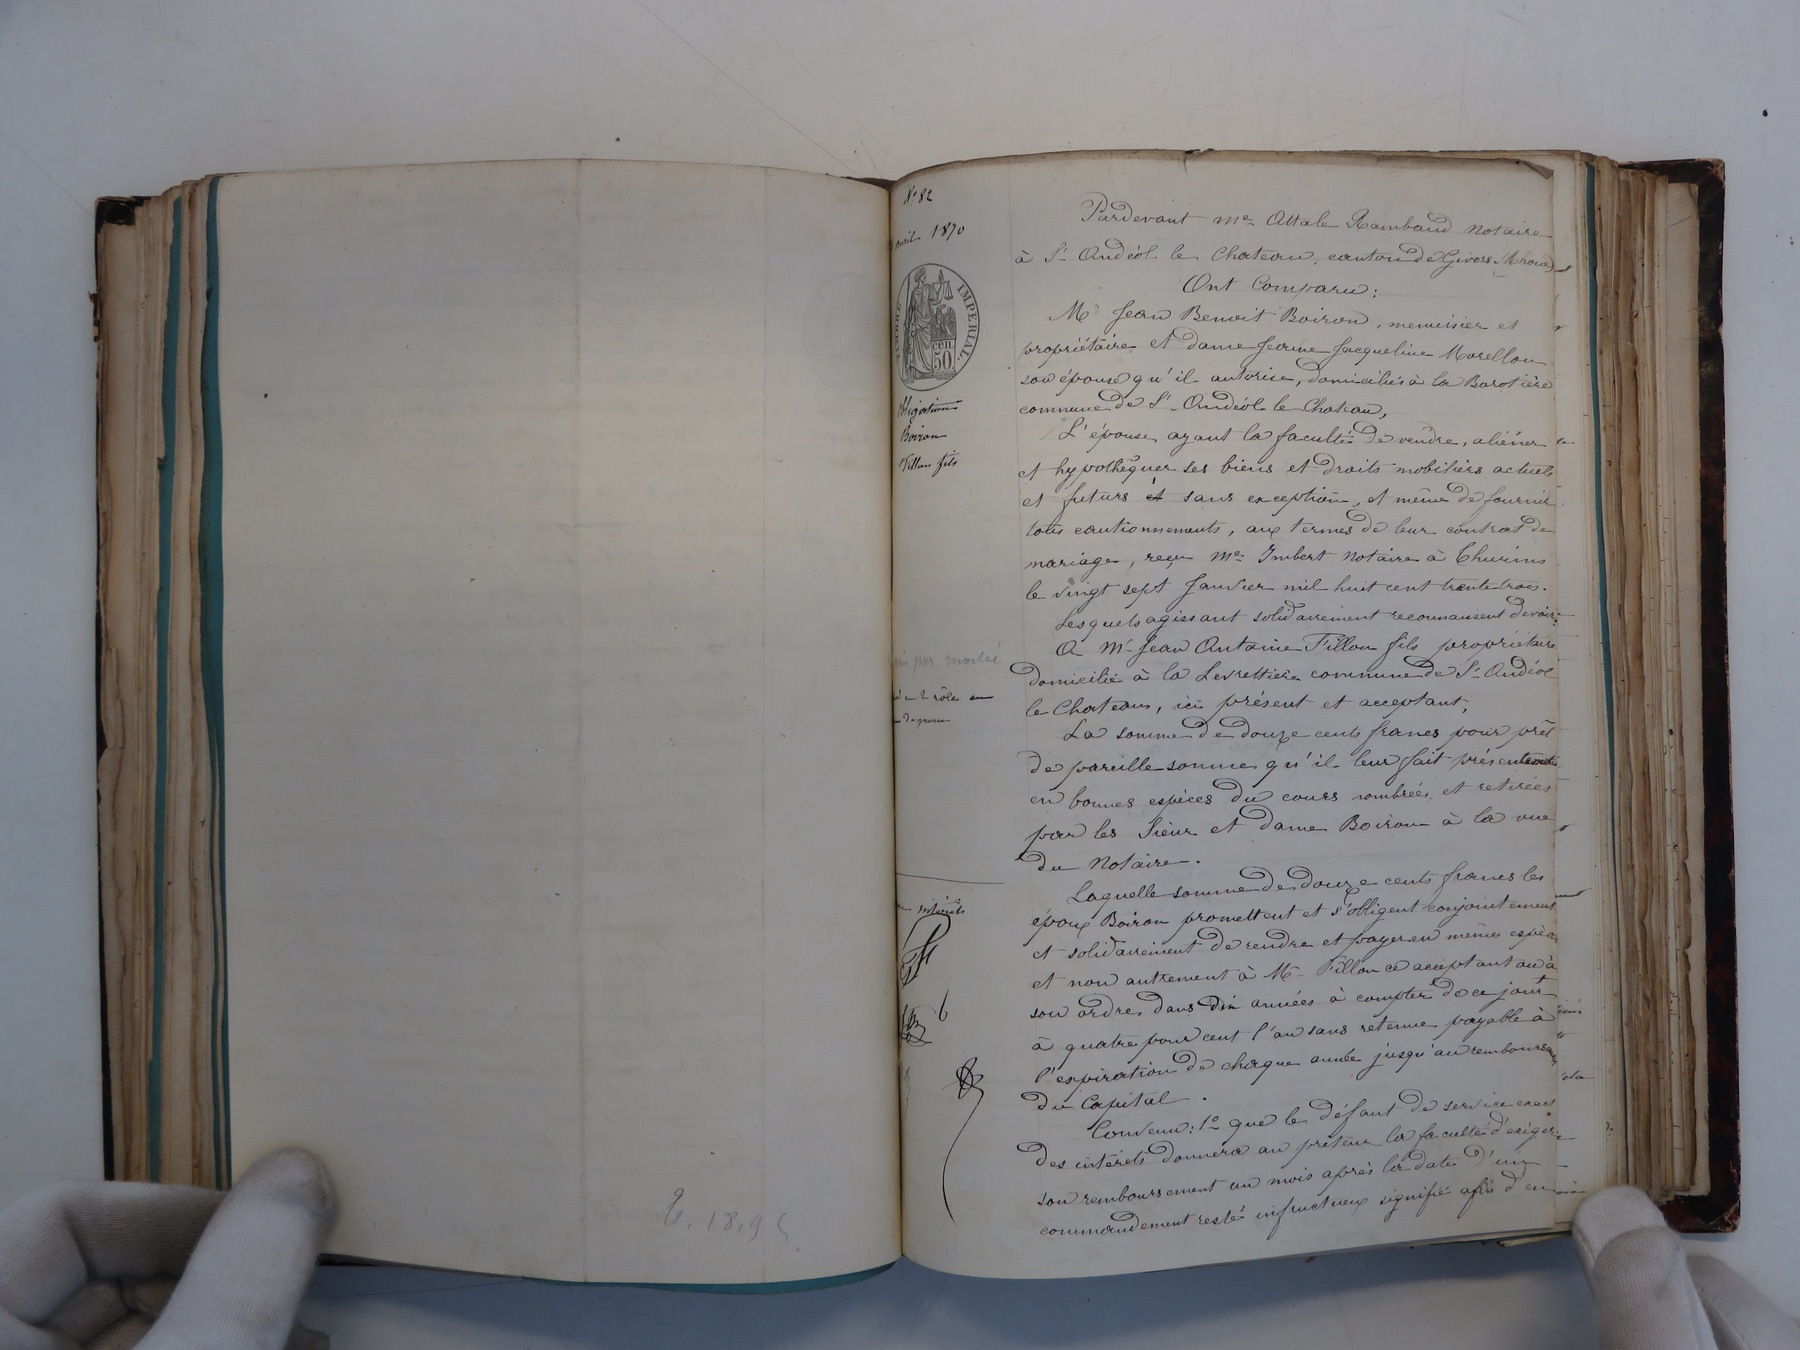 N° 82
avril 1870
TIMBRE IMPERIAL.
50 cen
Obligation
Boiron
Fillon fils
par moitié
2 rôle
intérêts
E. 18,95
Pardevant Me Attale Rambaud Notaire
à St Andéol le Chateau, canton de Givors (Rhône)
Ont Comparu:
Mr Jean Benoit Boiron, menuisier et
propriétaire et dame Jeanne Jacqueline Morellon
son épouse qu'il autorise, domiciliés à la Barotière
commune de St Andéol le Chateau,
L'épouse ayant la faculté de vendre, aliéner
et hypothéquer ses biens et droits mobiliers actuels
et futurs et sans exception, et même de fournir
tous cautionnements, aux termes de leur contrat de
mariage, reçu Me Imbert notaire à Thurins
le vingt sept Janvier mil huit cent trente trois.
Lesquels agissant solidairement reconnaissent devoir:
A Mr Jean Antoine Fillon fils propriétaire
domicilié à la Levrettière commune de St Andéol
le Chateau, ici présent et acceptant,
La somme de douze cents francs pour prêt
de pareille somme qu'il leur fait présentement
en bonnes espèces du cours nombrées et retirées
par les Sieur et dame Boiron à la vue
du Notaire.
Laquelle somme de douze cents francs les
époux Boiron promettent et s'obligent conjointement
et solidairement de rendre et payer en mêmes espèces
et non autrement à Mr Fillon ce acceptant ou à
son ordre, dans dix années à compter de ce jour
à quatre pour cent l'an sans retenue payable à
l'expiration de chaque année jusqu'au rembourse
du Capital.
Convenu: 1° que le défaut de service exact
des intérêts donnera au prêteur la faculté d'exiger
son remboursement un mois après la date d'un
commandement resté infructueux signifié afin d'en